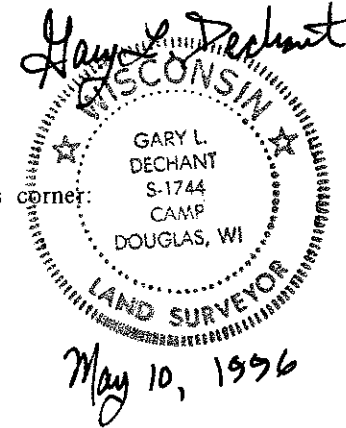 Gary L. Dechant
WISCONSIN
GARY L.
DECHANT
S-1744
corner:
CAMP
DOUGLAS, WI
LAND SURVEYOR
May 10, 1996